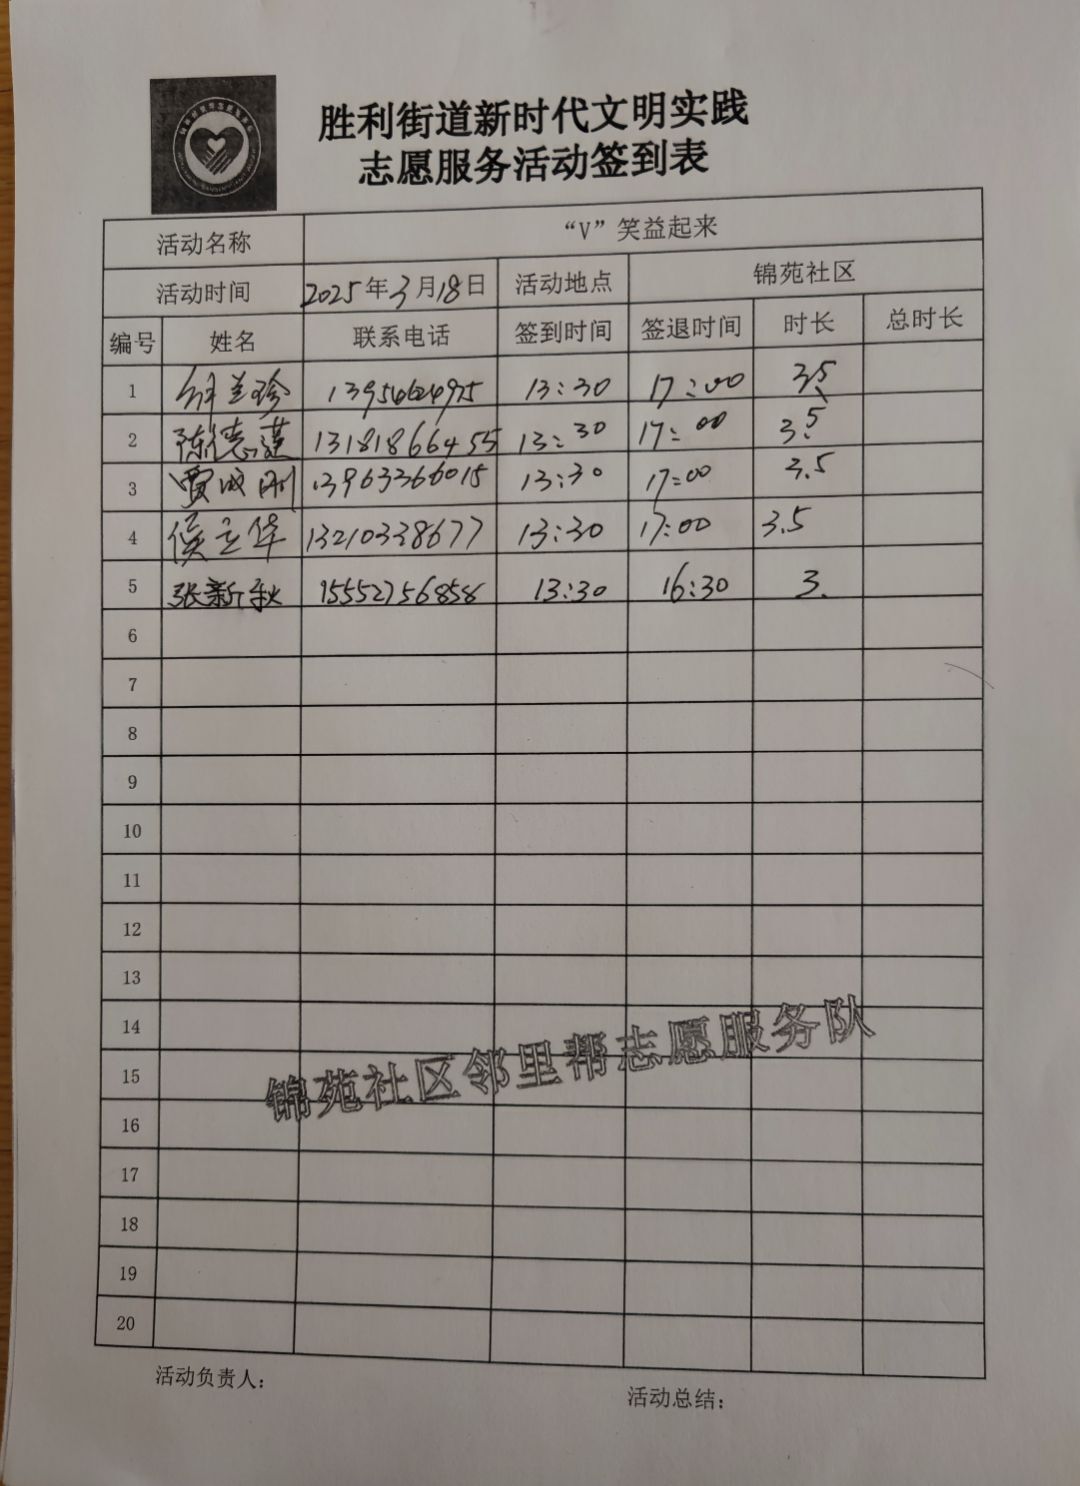 胜利街道新时代文明实践
志愿服务活动签到表
活动名称 “V”笑益起来
活动时间 2025年3月18日 活动地点 锦苑社区
编号 姓名 联系电话 签到时间 签退时间 时长 总时长
1 兰珍 13:30 17:00 3.5
2 陈德 13181866455 13:30 17:00 3.5
3 贾成刚 13963366015 13:30 17:00 3.5
4 侯立华 13210338677 13:30 17:00 3.5
5 张新秋 15552756858 13:30 16:30 3.
6
7
8
9
10
11
12
13
14
15
16
17
18
19
20
锦苑社区邻里帮志愿服务队
活动负责人:
活动总结: